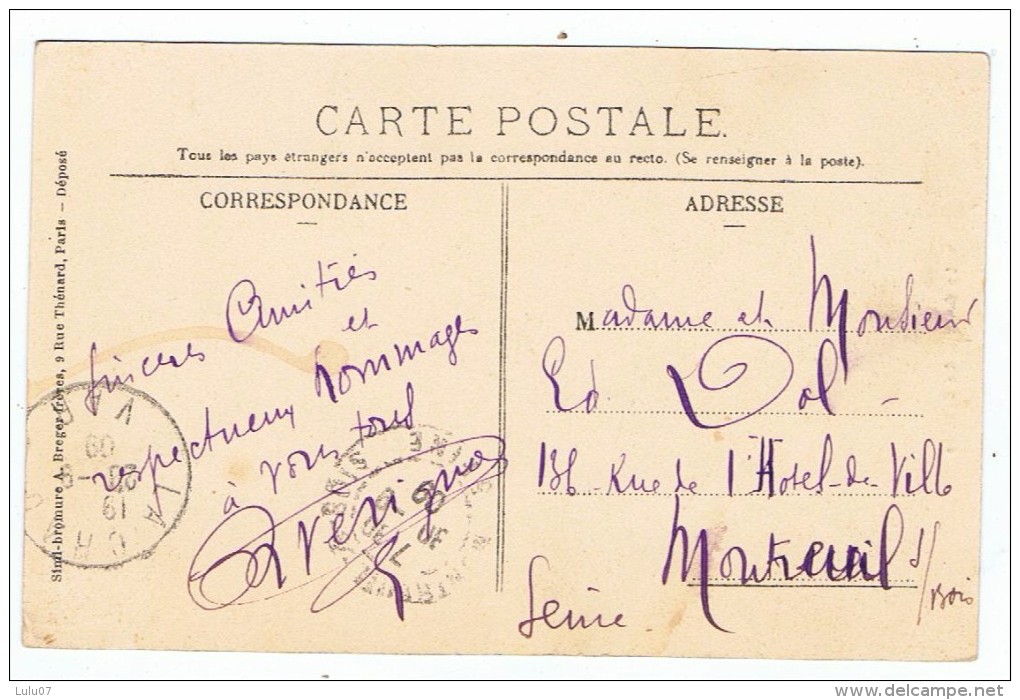 CARTE POSTALE.
Tous les pays étrangers n'acceptent pas la correspondance au recto. (Se renseigner à la poste).
CORRESPONDANCE
Sincères Amitiés
et
respectueux hommages
à vous tous
ADRESSE
Madame et Monsieur
Ed Dol
136 Rue de l'Hotel-de-Ville
Montreuil s/Bois
Seine
Simil-bromure A. Breger frères, 9 Rue Thénard, Paris — Déposé
09
19
Lulu07
www.delcampe.net